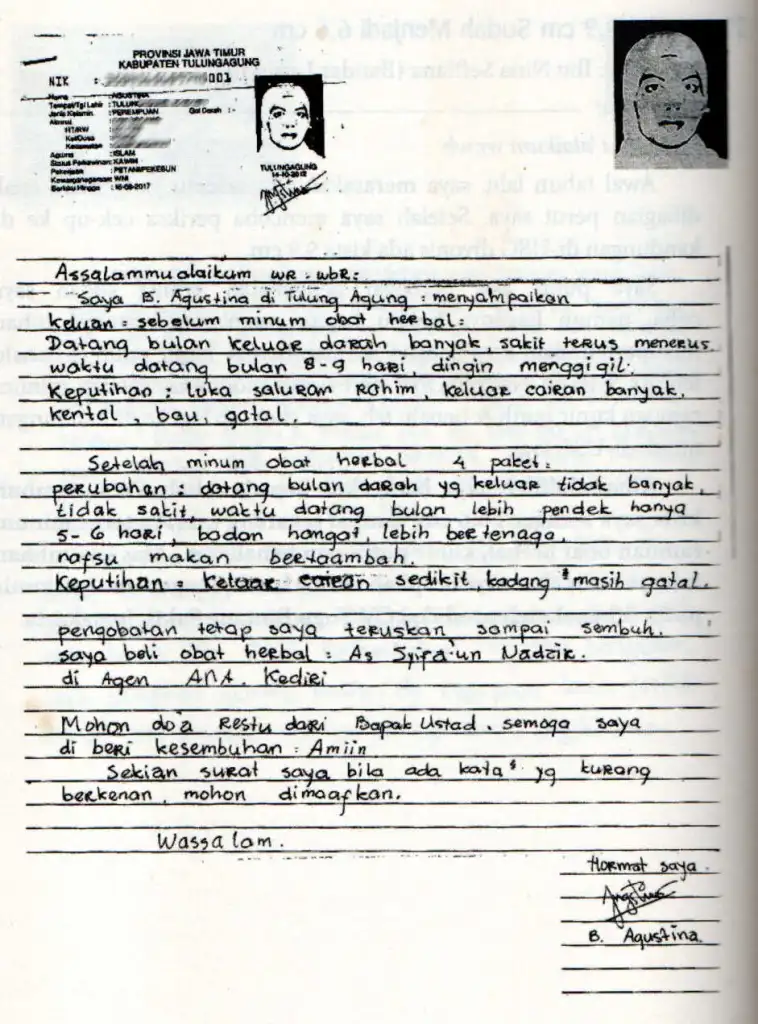 PROVINSI JAWA TIMUR
KABUPATEN TULUNGAGUNG
NIK : 0001
Nama : AGUSTINA
Tempat/Tgl Lahir : TULUNG
Jenis Kelamin : PEREMPUAN Gol Darah : -
Alamat
RT/RW
Kel/Desa
Kecamatan
Agama : ISLAM
Status Perkawinan : KAWIN
Pekerjaan : PETANI/PEKEBUN
Kewarganegaraan : WNI
Berlaku Hingga : 16-08-2017
TULUNGAGUNG
14-10-2012
Assalammualaikum wR. wbR.
Saya B. Agustina di Tulung Agung : menyampaikan
keluan : sebelum minum obat herbal :
Datang bulan keluar darah banyak, sakit terus menerus
waktu datang bulan 8-9 hari, dingin menggigil.
Keputihan : luka saluran Rahim, keluar cairan banyak,
kental, bau, gatal.
Setelah minum obat herbal 4 paket :
perubahan : datang bulan darah yg keluar tidak banyak,
tidak sakit, waktu datang bulan lebih pendek hanya
5-6 hari, badan hangat, lebih bertenaga,
nafsu makan bertambah.
Keputihan keluar cairan sedikit, kadang² masih gatal.
pengobatan tetap saya teruskan sampai sembuh.
saya beli obat herbal : As Syifa'un Nadzik.
di Agen ANA. Kediri
Mohon doa Restu dari Bapak Ustad, semoga saya
di beri kesembuhan : Amiin
Sekian surat saya bila ada kata² yg kurang
berkenan, mohon dimaafkan.
Wassalam.
Hormat saya
B. Agustina.